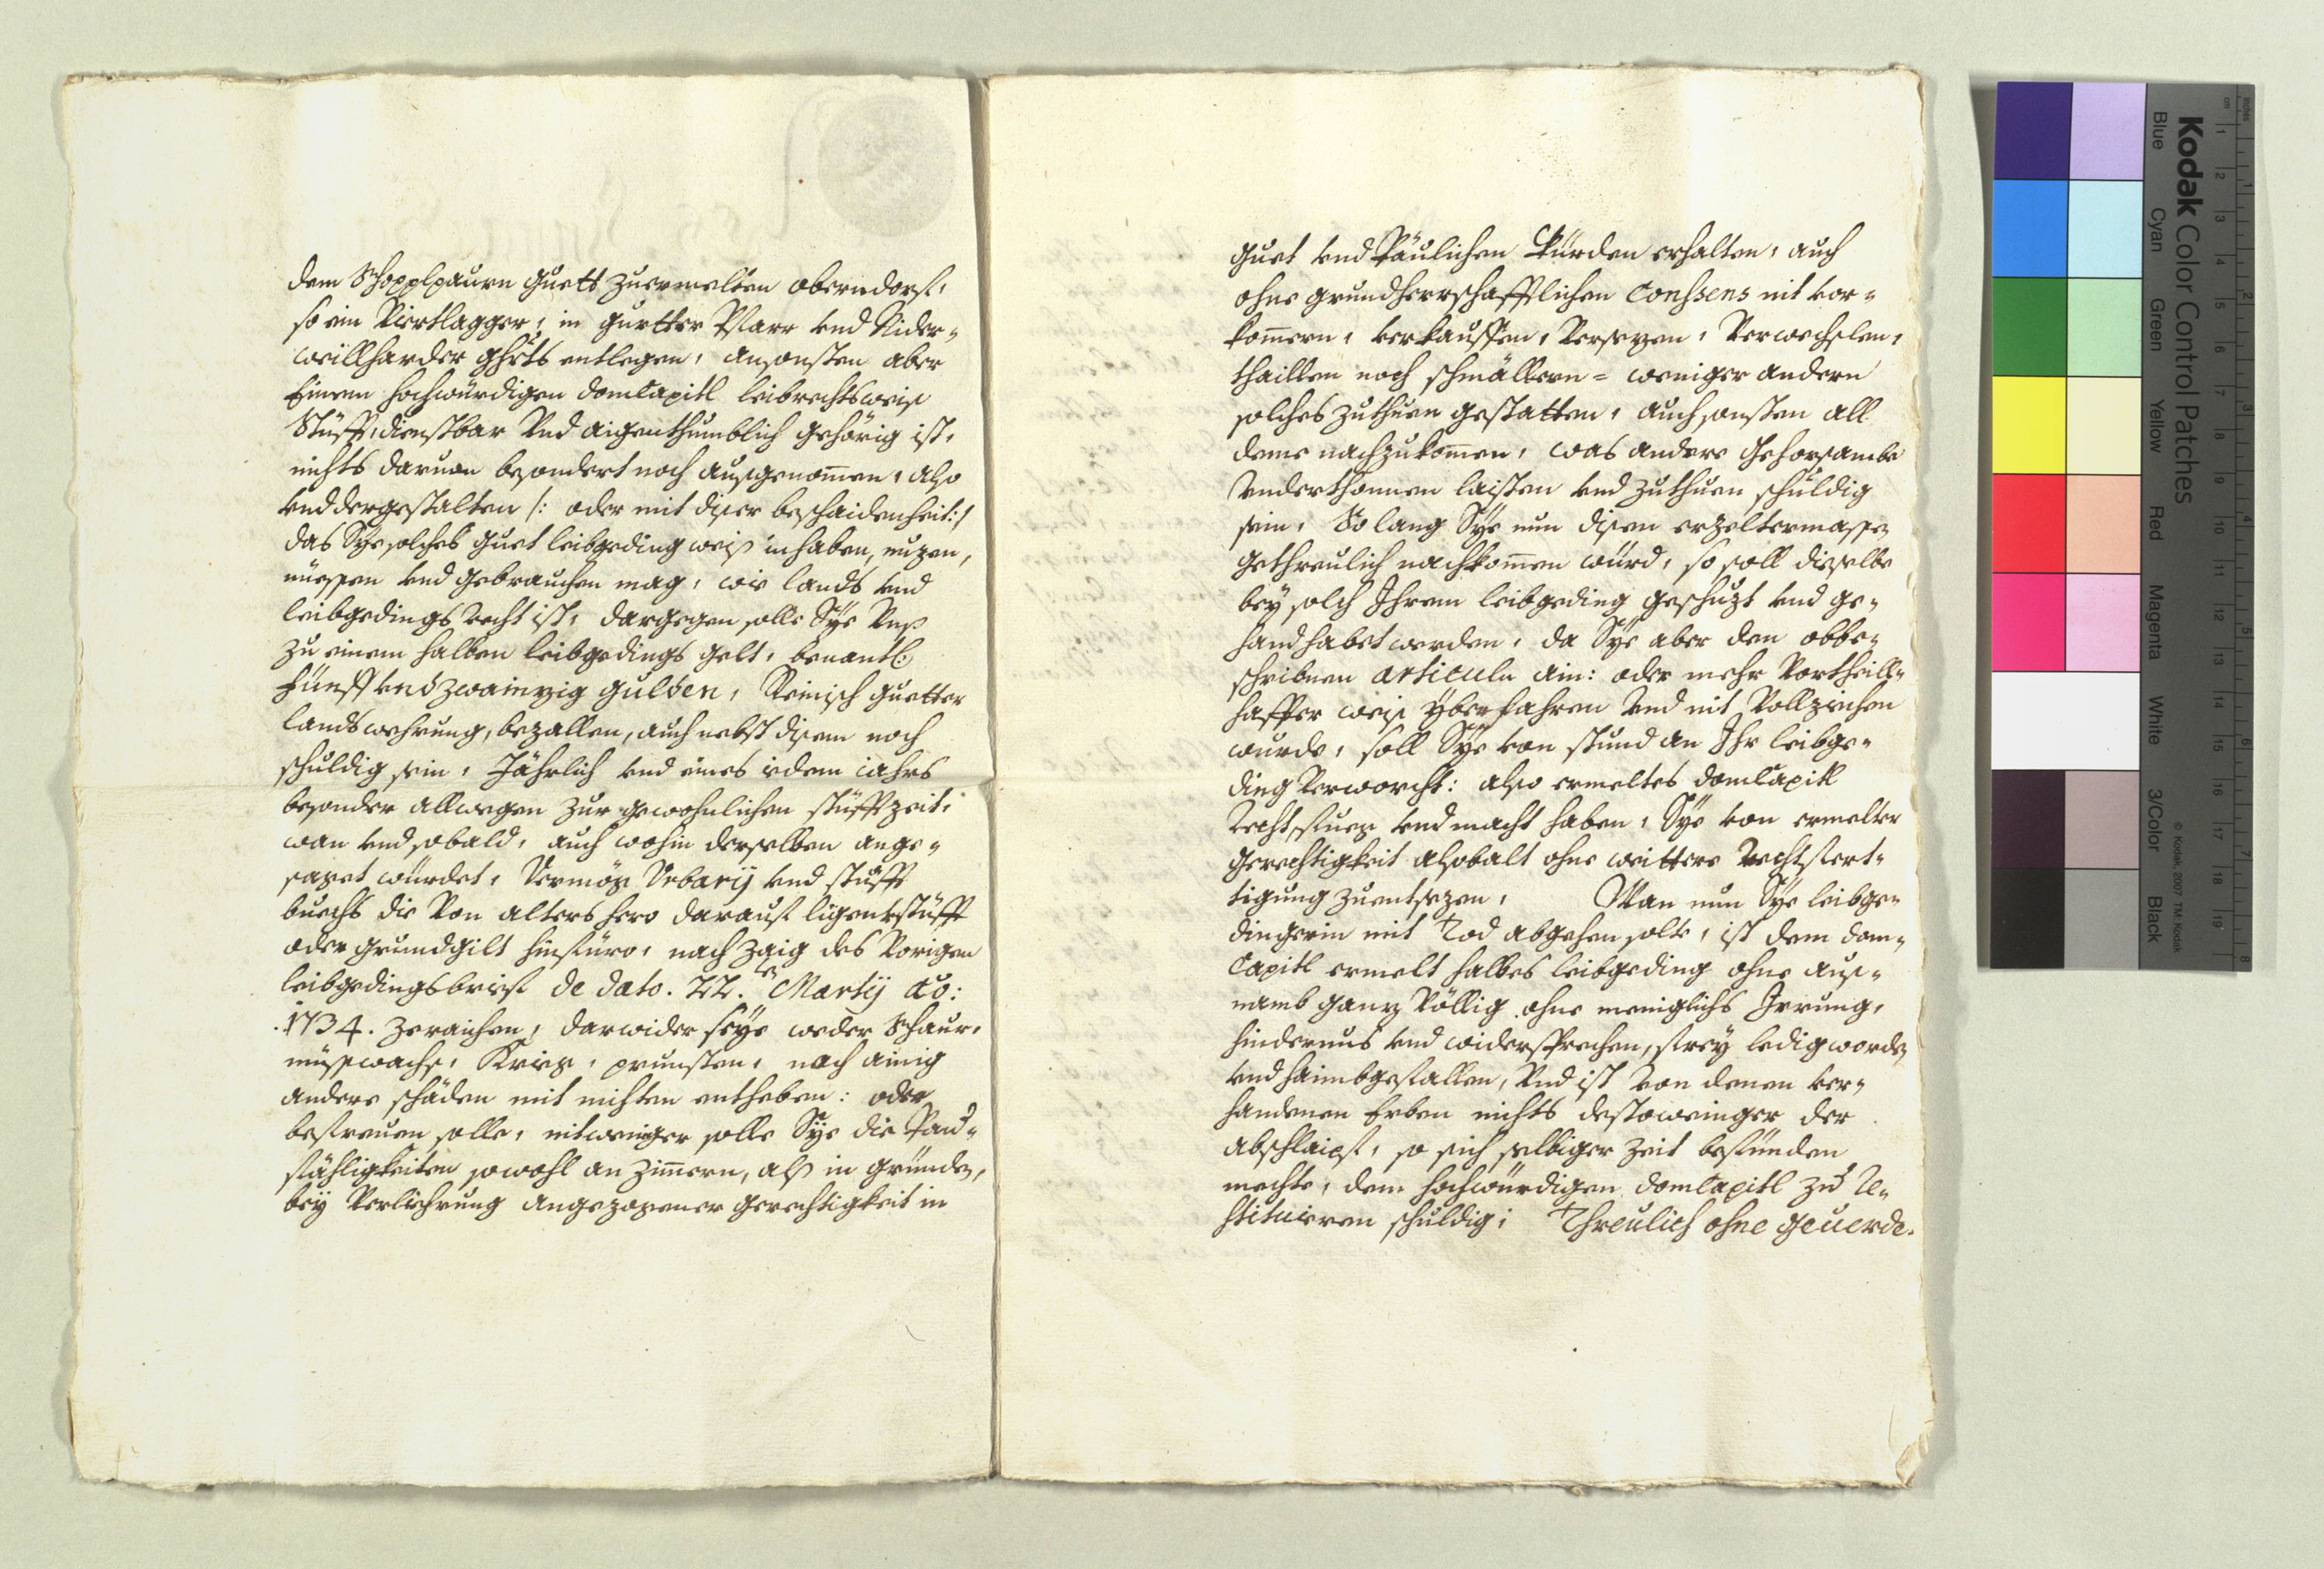 dem Schopplpaurn Guett zuermelten Oberndorf,
so ein Viertlagger, in Gurtter Pfarr vnd Nider-
weillharder Ghrts entlegen, ansonsten aber
Einem Hochwürdigen DomCapitl leibrechtsweis
Stüfft, dienstbar Vnd aigenthumblich gehörig ist,
nichts daruon besondert noch ausgenomen, also
vnd dergestalten /: oder mit diser beschaidenheit :/
das Sye solches Guet leibgeding weis inhaben, nuzen,
niessen vnd gebrauchen mag, wie lands vnd
leibgedings Recht ist, dargegen solle Sye Vns
zu einem halben leibgedings gelt, benantl:
Fünff vnd zwainzig Gulden, Reinisch guetter
landswehrung, bezallen, auch nebst disem noch
schuldig sein, Jährlich vnd eines iedem iahrs
besonder allwegen zur gewohnlichen stüfftzeit,
wan vnd sobald, auch wohin derselben ange-
saget würdet, Vermög Vrbarij vnd stüfft
buechs die Von alters hero darauf ligente stüfft
oder grundgilt hinfüro, nach zaig des Vorigen
leibgedingsbrief de dato. 22.ten Martij ao:
.1734. zeraichen, darwider seye weder Schaur,
müsswachs, Krieg, prunsten, noch ainig
andere schäden mit nichten entheben: oder
befreuen solle, nitweniger solle Sye die Pau-
fähligkeiten sowohl an Zimern, als in gründen,
bey Verliehrung angezogener gerechtigkeit in
guet vnd Päulichen Würden erhalten, auch
ohne grundherrschafftlichen Conssens nit ver-
komern, verkauffen, Versezen, Verwechslen,
thaillen noch schmällern = weniger andern
solches zuthuen gestatten, auch sonsten all
deme nachzukomen, was andere gehorsambe
Vnderthonnen laisten vnd zuthuen schuldig
sein, So lang Sye nun disen erzeltermassen
gethreulich nachkomen würd, so soll dieselbe
bey solch Ihrem leibgeding geschuzt vnd ge-
handhabet werden, da Sye aber den obbe-
schribnen articuln ain: oder mehr Vortheill-
haffter weis yberfahren Vnd nit Vollziehen
wurde, soll Sye von stund an Ihr leibge-
ding Verworcht: also ermeltes DomCapitl
Recht, fueg vnd macht haben, Sye von ermelter
gerechtigkeit alsobalt ohne weittere Rechtfert-
tigung zuentsezen, Wan nun Sye leibge-
dingerin mit Tod abgehen solte, ist dem Dom-
Capitl ermelt halbes leibgeding ohne aus-
namb ganz Völlig ohne meniglichs Irrung,
hindernus vnd widersprechen, frey ledig worden
vnd haimbgefallen, Vnd ist von denen ver-
handenen Erben nichts destoweniger der
abschlaipf, so sich selbiger Zeit befünden
mechte, dem hochwürdigen DomCapitl zu Re-
stituieren schuldig; Threulich ohne geuerde.
Kodak Color Control Patches
Blue Cyan Green Yellow Red Magenta White 3/Color Black
© Kodak, 2007 TM: Kodak
inches 1 2 3 4 5 6 7 8
cm 1 2 3 4 5 6 7 8 9 10 11 12 13 14 15 16 17 18 19